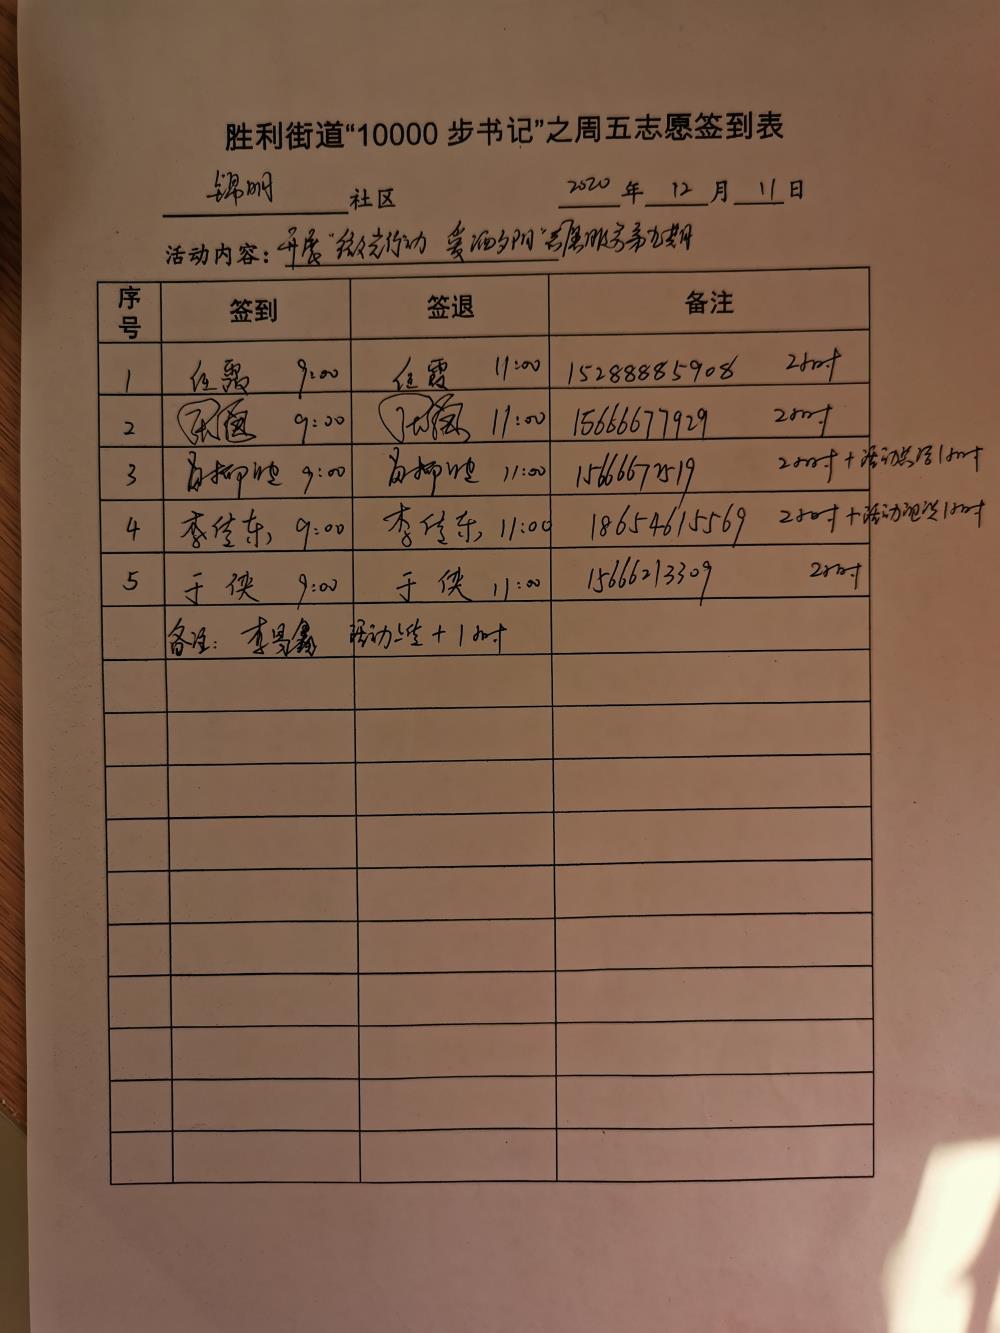 胜利街道“10000 步书记”之周五志愿签到表
锦明 社区 2020 年 12 月 11 日
活动内容：开展“微光行动 爱洒夕阳”志愿服务第九期
序号 签到 签退 备注
1 任霞 9:00 任霞 11:00 15288885908 2小时
2 9:00 11:00 15666677929 2小时
3 9:00 11:00 15666672519 2小时+活动 1小时
4 李佳东 9:00 李佳东 11:00 18654615569 2小时+活动 1小时
5 于侠 9:00 于侠 11:00 15666213309 2小时
备注：李昌鑫 活动 +1小时